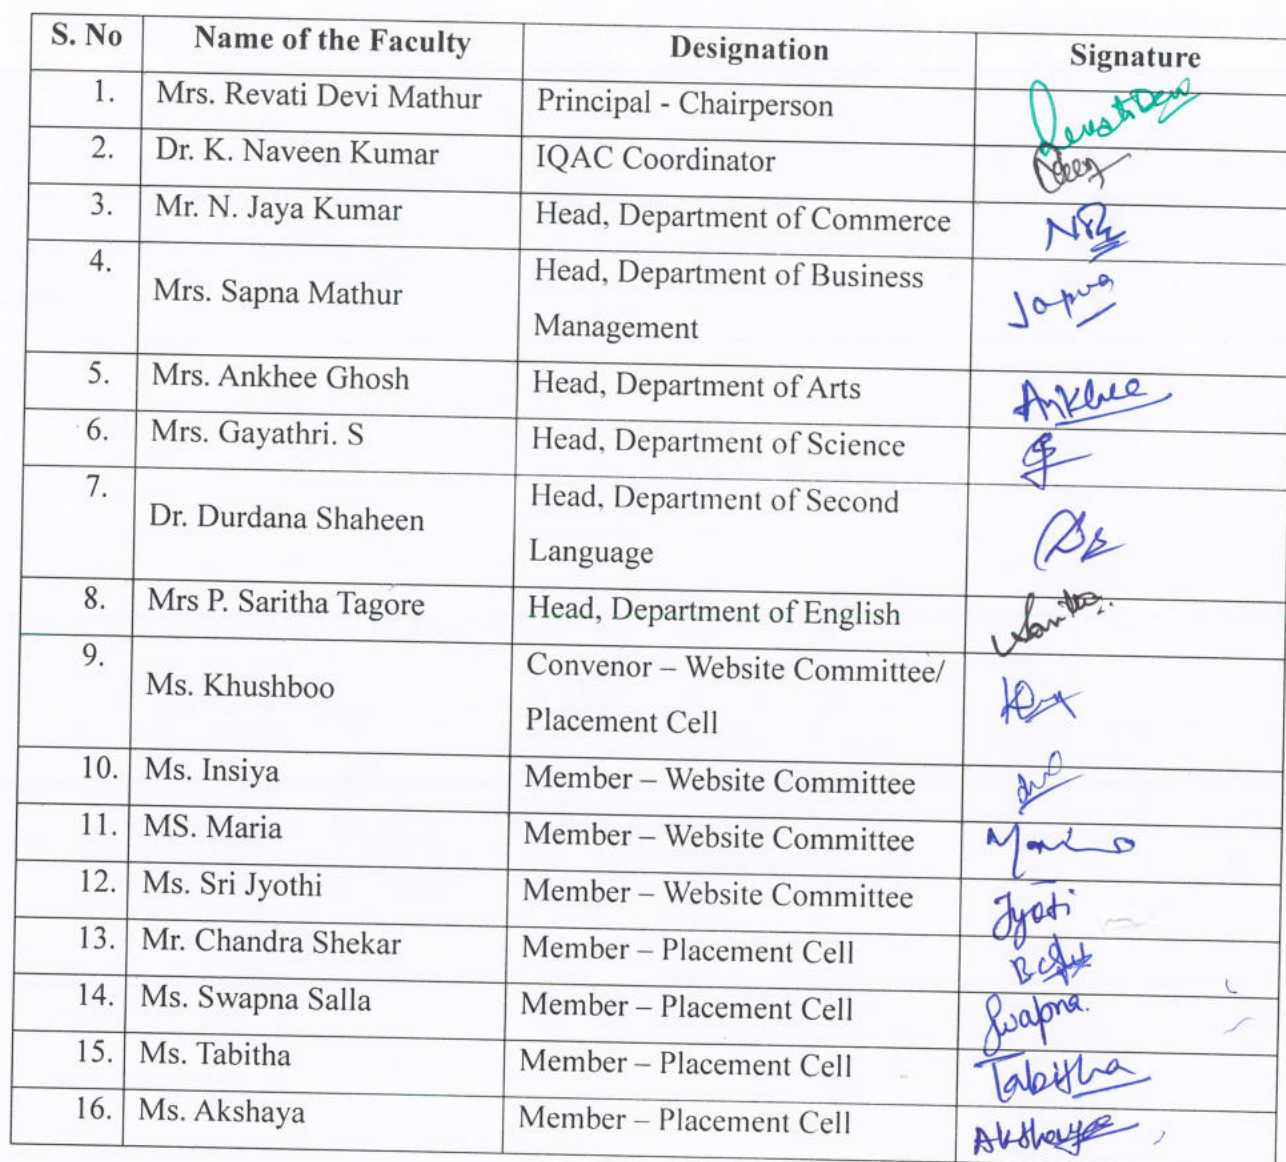 S. No Name of the Faculty Designation Signature
1. Mrs. Revati Devi Mathur Principal - Chairperson Revati Devi
2. Dr. K. Naveen Kumar IQAC Coordinator
3. Mr. N. Jaya Kumar Head, Department of Commerce
4. Mrs. Sapna Mathur Head, Department of Business
Management Sapna
5. Mrs. Ankhee Ghosh Head, Department of Arts Ankhee
6. Mrs. Gayathri. S Head, Department of Science
7. Dr. Durdana Shaheen Head, Department of Second
Language
8. Mrs P. Saritha Tagore Head, Department of English Saritha
9. Ms. Khushboo Convenor – Website Committee/
Placement Cell
10. Ms. Insiya Member – Website Committee
11. MS. Maria Member – Website Committee
12. Ms. Sri Jyothi Member – Website Committee Jyoti
13. Mr. Chandra Shekar Member – Placement Cell
14. Ms. Swapna Salla Member – Placement Cell Swapna.
15. Ms. Tabitha Member – Placement Cell Tabitha
16. Ms. Akshaya Member – Placement Cell Akshaya